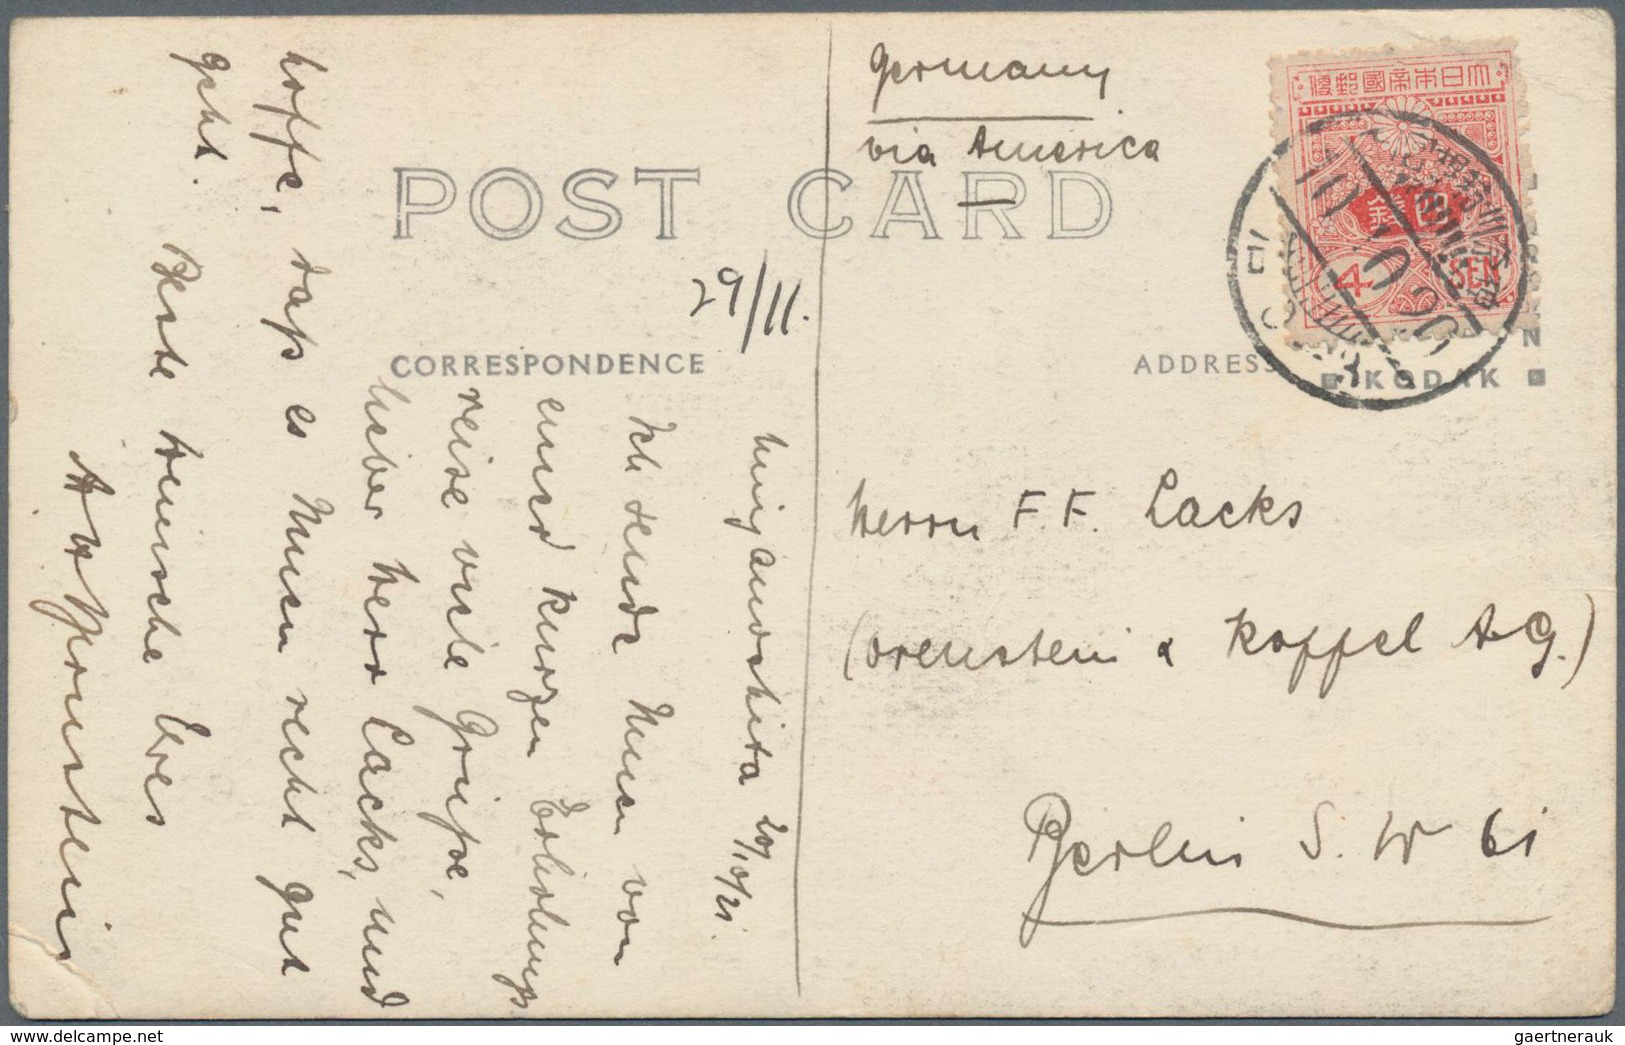 Germany
via America
POST CARD
29/11.
CORRESPONDENCE
ADDRESS
大日本帝國郵便
四錢
4 SEN
KODAK
Herrn F. F. Lacks
(Orenstein & Koppel A-G.)
Berlin S. W 61
Miyanoshita 20/10/21.
Ich sende Ihnen von
einer kurzen Erholungs
reise viele Grüße,
lieber Herr Lacks, und
hoffe, daß es Ihnen recht gut
geht.
Beste Wünsche Ihres
delcampe.net
gaertnerauk